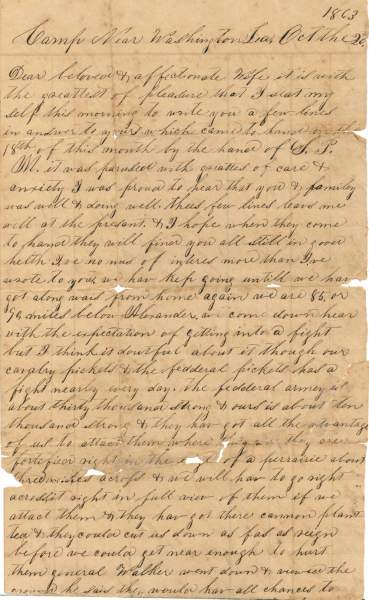 1863
Camp Near Washington Lua, Oct the 20
Dear beloved & affectionate Wife it is with
the greattest of pleasure that I seat my
self this morning to write you a few lines
in answer to yours which came to hand on the
18th of this month by the hand of S. P.
M. it was perused with greattes of care &
anxiety I was proud to hear that you & family
was well & doing well. thees few lines leavs me
well at the present. & I hope when they come
to hand they will find you all still in good
helth I ve no nus of interes more than I've
wrote to you, we hav kep going untill we hav
got along wais from home again we are 85, or
90 miles below Alexander, we come down hear
with the expectation of getting into a fight
but I think it doutful about it though our
cavalry pickets & the fedderal pickets has a
fight nearly every day. the fedderal armey is
about thirty thousand strong & ours is about ten
thousand strong & they hav got all the advantage
of us to attact them where they are
fortefied right in the edge of a perrairie about
three miles across & we will hav to go right
acrosst it right in full view of them if we
attact them & they hav got there cannon plant
ted & they could cut us down as fas as
before we could get near enough to hurt
them general Walker went down & viewed the
ground he said they would hav all chances to